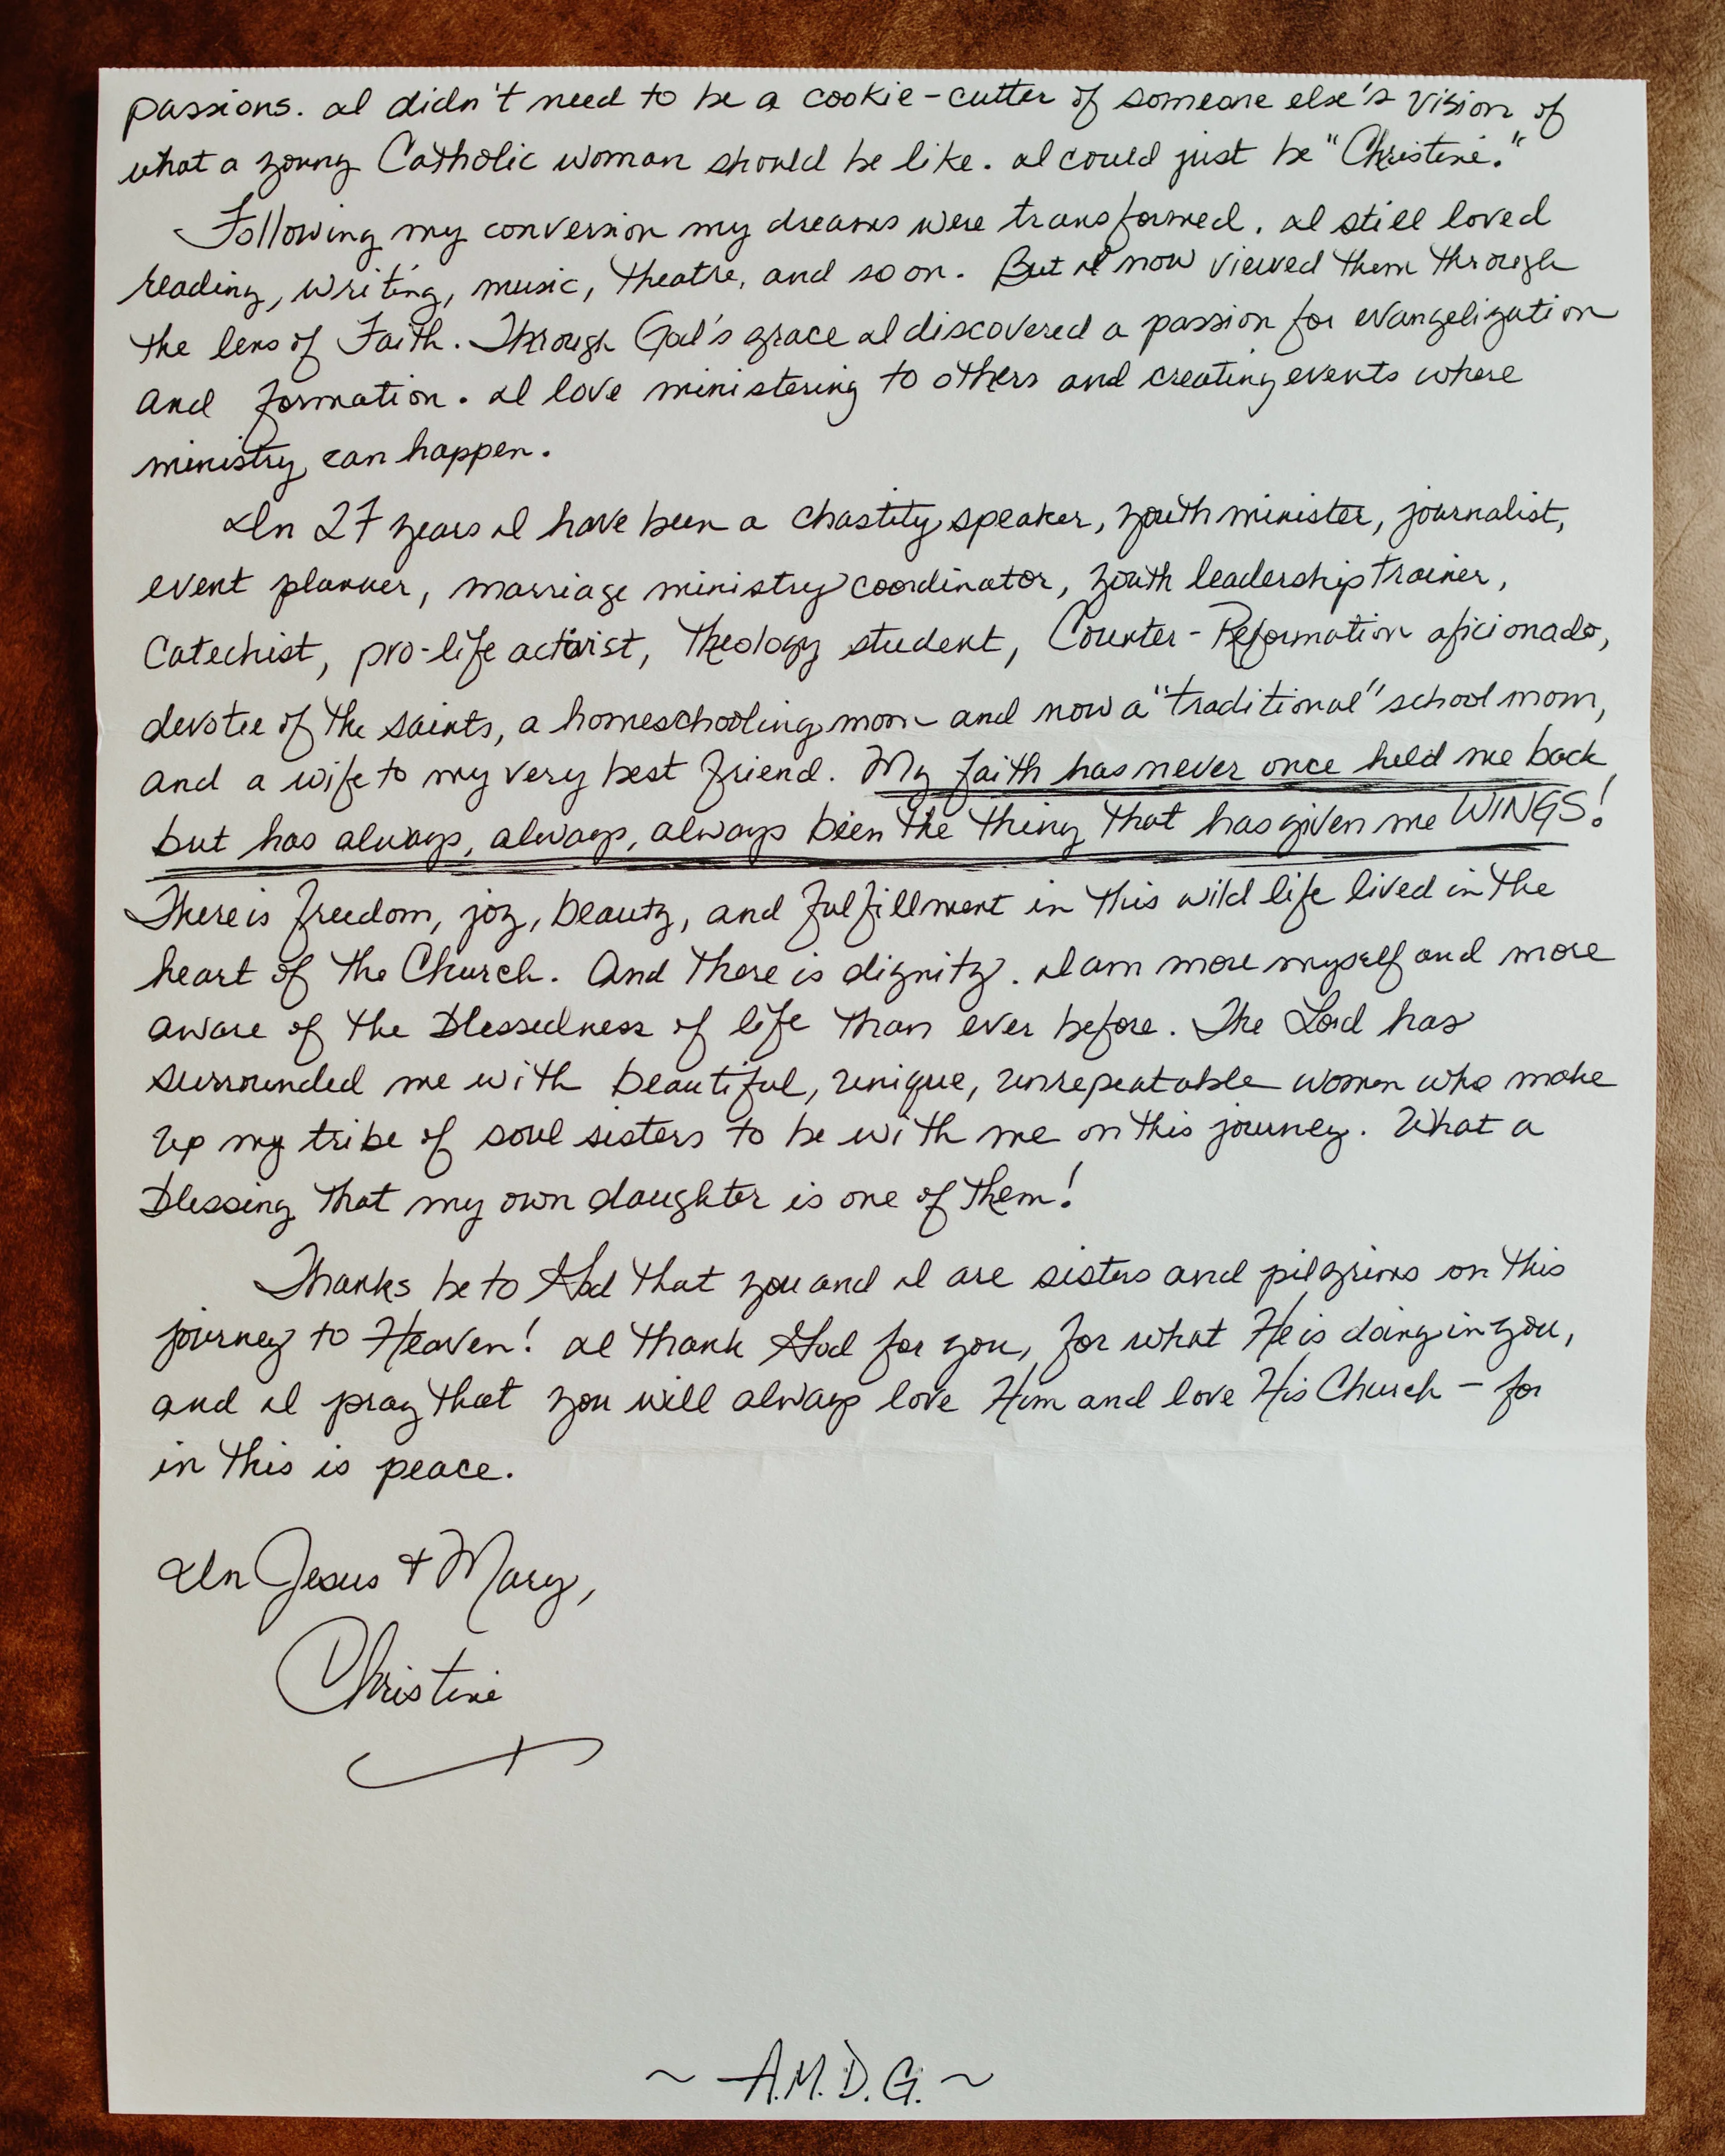 passions. I didn't need to be a cookie-cutter of someone else's vision of
what a young Catholic woman should be like. I could just be "Christine."
Following my conversion my dreams were transformed. I still loved
reading, writing, music, theatre, and so on. But I now viewed them through
the lens of Faith. Through God's grace I discovered a passion for evangelization
and formation. I love ministering to others and creating events where
ministry can happen.
In 27 years I have been a chastity speaker, youth minister, journalist,
event planner, marriage ministry coordinator, youth leadership trainer,
Catechist, pro-life activist, Theology student, Counter-Reformation aficionado,
devotee of the saints, a homeschooling mom and now a "traditional" school mom,
and a wife to my very best friend. My faith has never once held me back
but has always, always, always been the thing that has given me WINGS!
There is freedom, joy, beauty, and fulfillment in this wild life lived in the
heart of the Church. And there is dignity. I am more myself and more
aware of the blessedness of life than ever before. The Lord has
surrounded me with beautiful, unique, unrepeatable women who make
up my tribe of soul sisters to be with me on this journey. What a
blessing that my own daughter is one of them!
Thanks be to God that you and I are sisters and pilgrims on this
journey to Heaven! I thank God for you, for what He is doing in you,
and I pray that you will always love Him and love His Church - for
in this is peace.
In Jesus + Mary,
Christine
~ A.M.D.G. ~